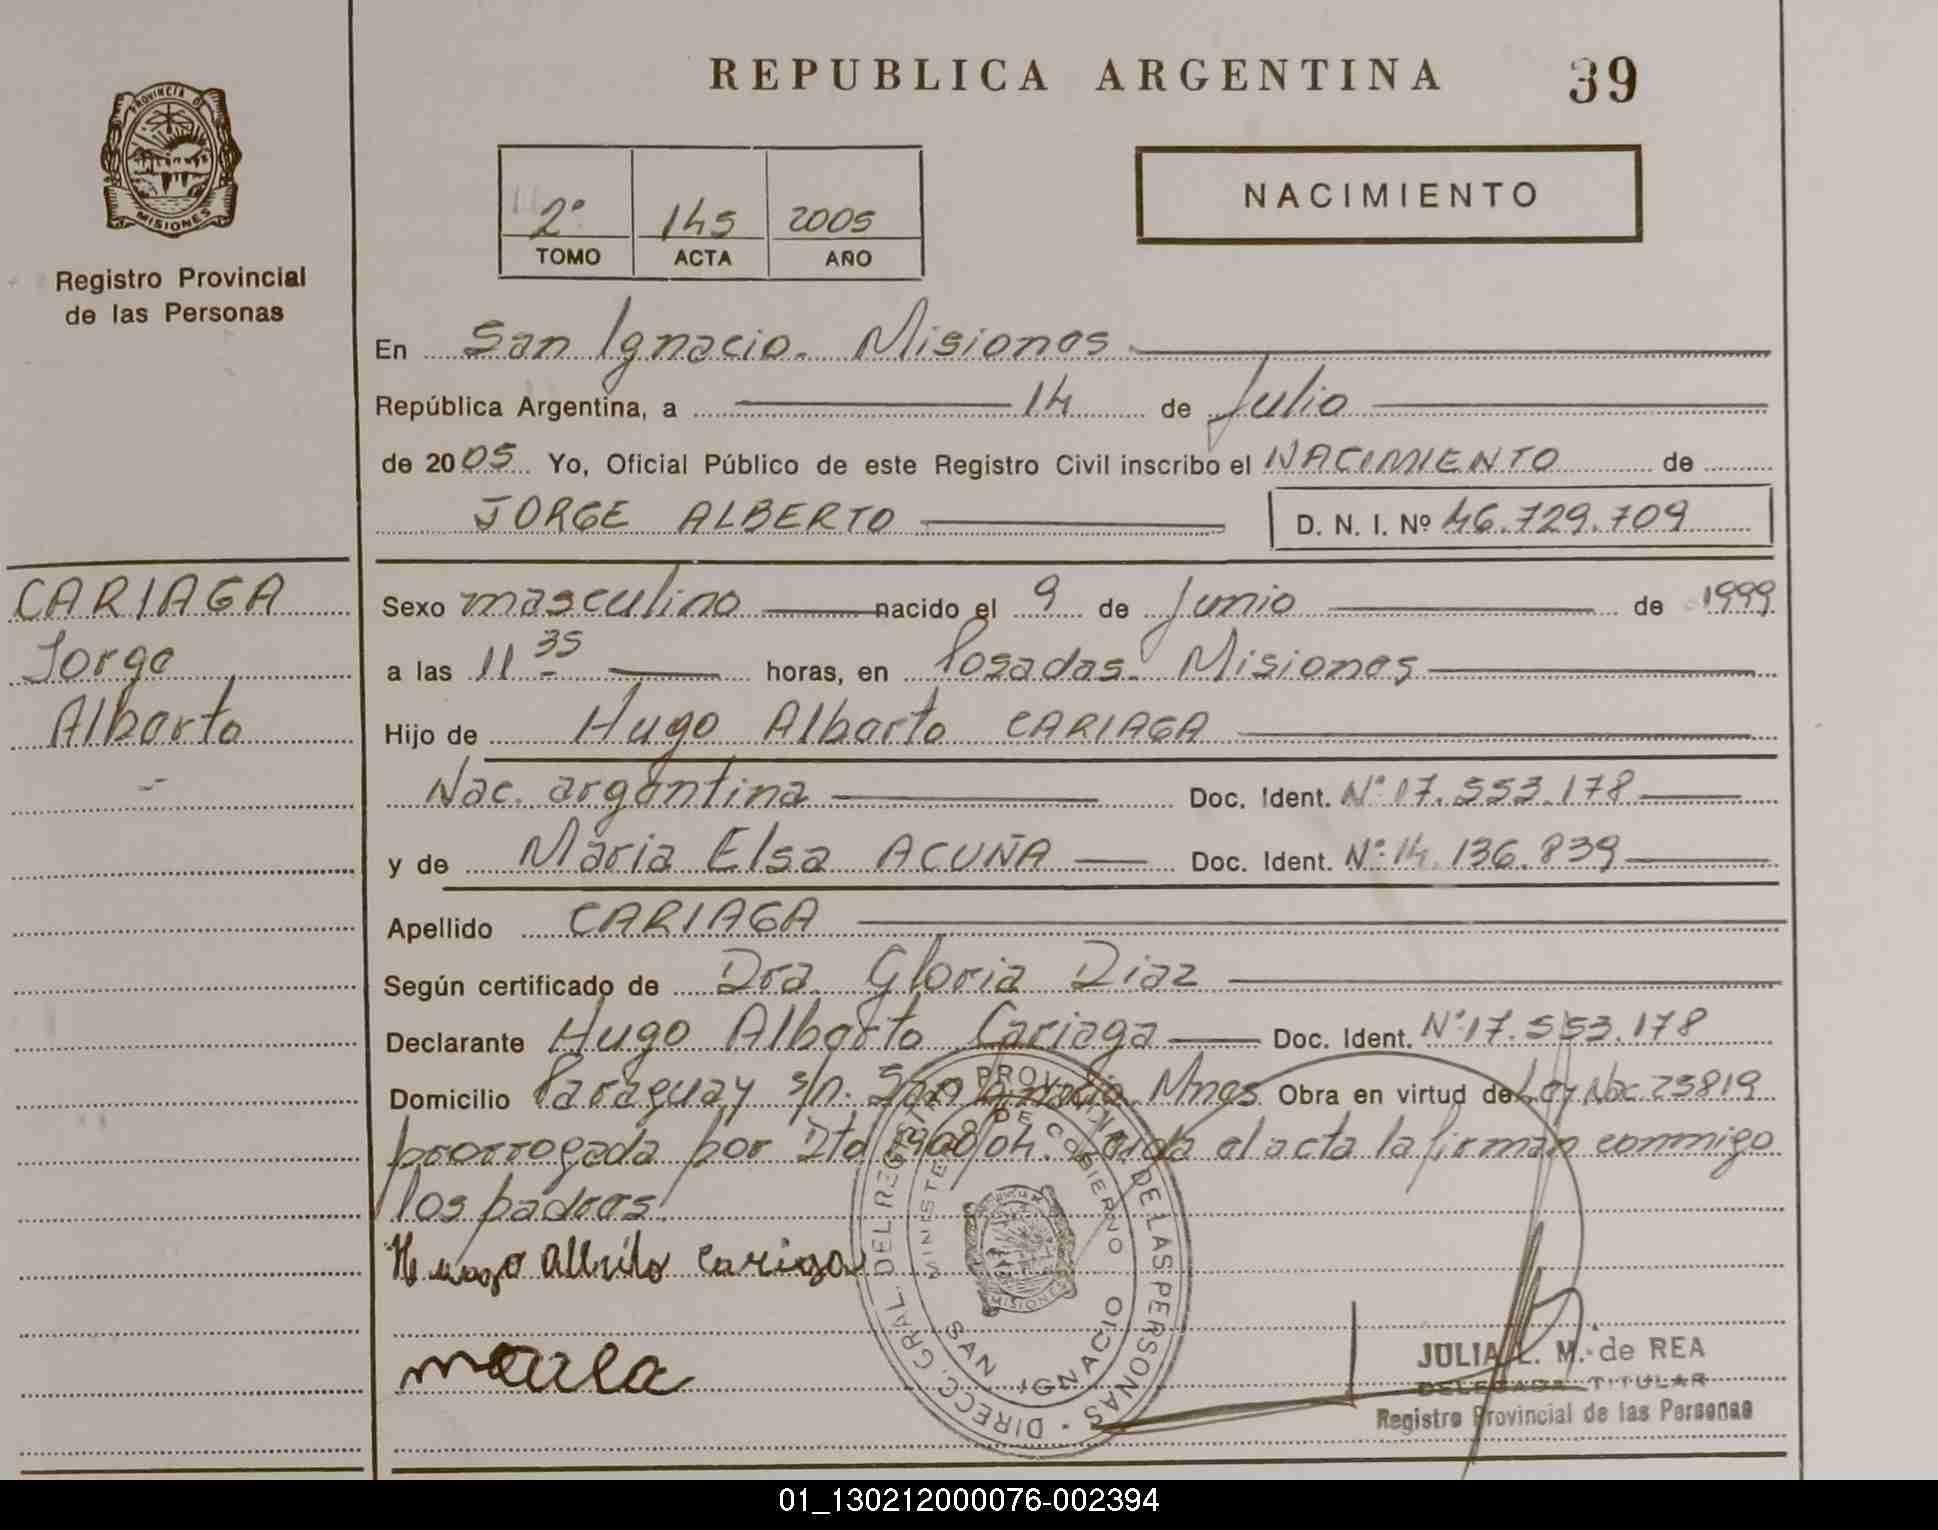 REPUBLICA ARGENTINA 39
PROVINCIA DE
MISIONES
Registro Provincial
de las Personas
2° 145 2005
TOMO ACTA AÑO
NACIMIENTO
En San Ignacio. Misiones
República Argentina, a 14 de Julio
de 2005 Yo, Oficial Público de este Registro Civil inscribo el NACIMIENTO de
JORGE ALBERTO D. N. I. Nº 46.729.709
CARIAGA
Jorge
Alberto
Sexo masculino nacido el 9 de Junio de 1999
a las 11 35 horas, en Posadas. Misiones
Hijo de Hugo Alberto CARIAGA
Nac. argentina Doc. Ident. Nº 17.553.178
y de Maria Elsa ACUÑA Doc. Ident. Nº 14.136.839
Apellido CARIAGA
Según certificado de Dra. Gloria Diaz
Declarante Hugo Alberto Cariaga Doc. Ident. Nº 17.553.178
Domicilio Paraguay s/n. San Ignacio Mnes Obra en virtud de Ley Nac 25819
prorrogada por Dto 1408/04. Leida el acta la firman conmigo
los padres.
Hugo Alberto Cariaga
DIRECC. GRAL. DEL REG. PROVINCIAL DE LAS PERSONAS
MINISTERIO DE GOBIERNO
MISIONES
SAN IGNACIO
JULIA L. M. de REA
DELEGADA TITULAR
Registro Provincial de las Personas
01_130212000076-002394